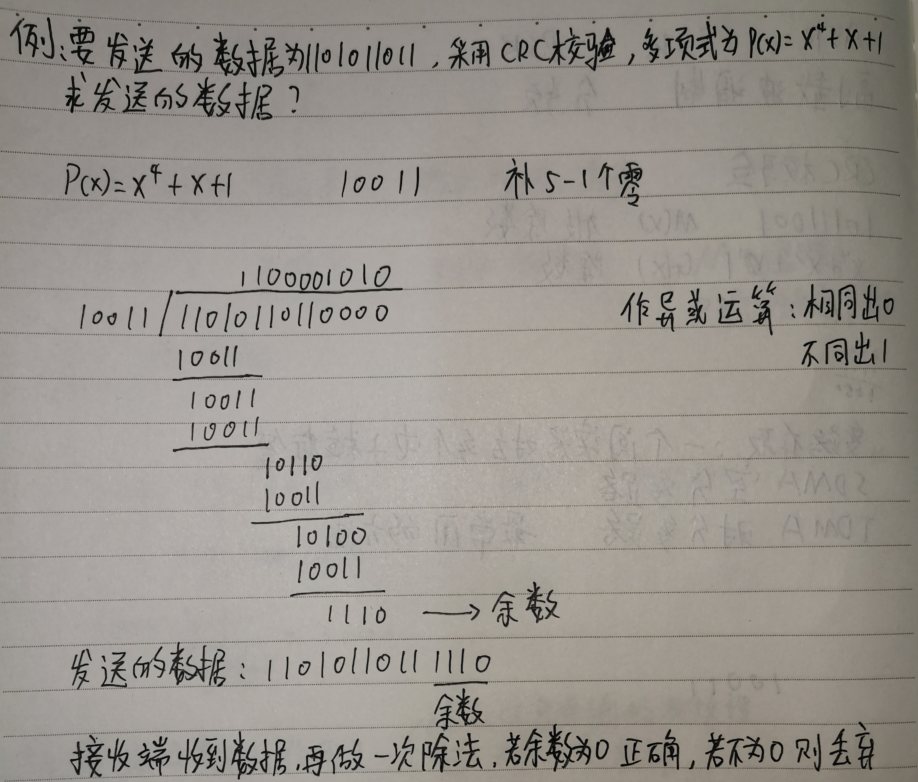 例:要发送的数据为1101011011,采用CRC校验,多项式为P(x)=x⁴+x+1
求发送的数据?
P(x)=x⁴+x+1 10011 补5-1个零
1100001010
10011 11010110110000 作异或运算:相同出0
10011 不同出1
10011
10011
10110
10011
10100
10011
1110 → 余数
发送的数据:1101011011 1110
余数
接收端收到数据,再做一次除法,若余数为0正确,若不为0则丢弃